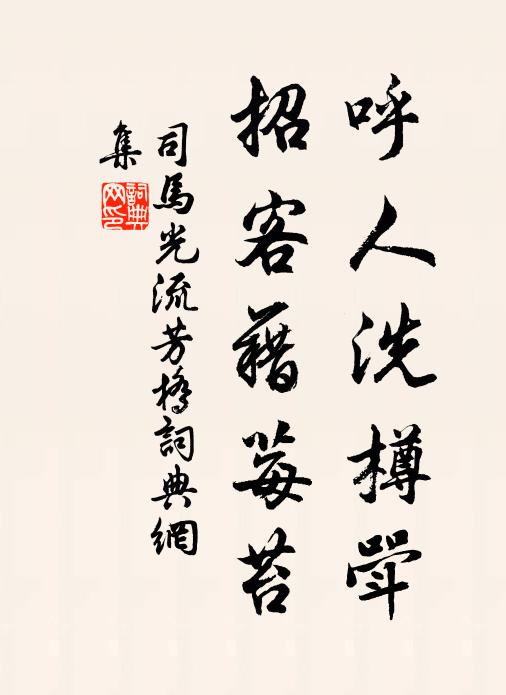 呼人洗樽斝
招客藉莓苔
司馬光流芳橋詞典網
集
詞典網印